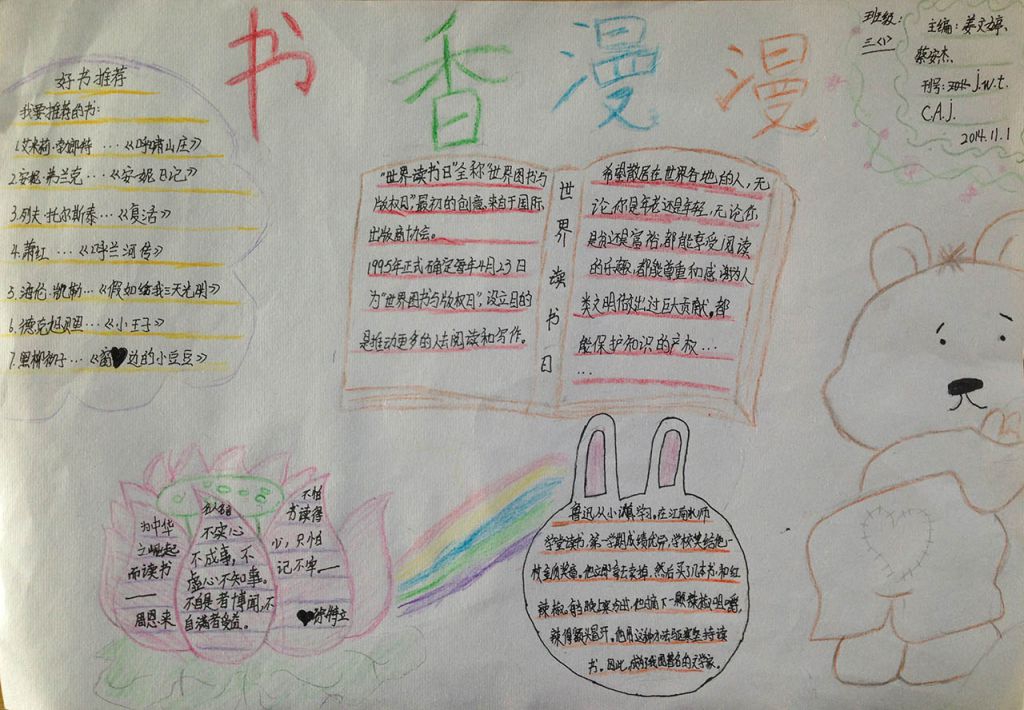 书香漫漫
班级:
三〈1〉
主编:姜文婷、
蔡安杰.
刊号:
j.w.t.
C.A.j.
2014.11.1
好书推荐
我要推荐的书:
1.艾米莉·勃朗特…《呼啸山庄》
2.安妮·弗兰克…《安妮日记》
3.列夫·托尔斯泰…《复活》
4.萧红…《呼兰河传》
5.海伦·凯勒…《假如给我三天光明》
6.德克旭贝里…《小王子》
7.黑柳彻子…《窗边的小豆豆》
“世界读书日”全称“世界图书与
版权日”,最初的创意来自于国际
出版商协会。
1995年正式确定每年4月23日
为“世界图书与版权日”,设立目的
是推动更多的人去阅读和写作。
世界读书日
希望散居在世界各地的人,无
论你是年老还是年轻,无论你
是贫还是富裕,都能享受阅读
的乐趣,都能尊重和感谢为人
类文明做出过巨大贡献,都
能保护知识的产权…
…
为中华
之崛起
而读书
——
周恩来
不实心
不成事,不
虚心不知事。
不自是者博闻,不
自满者受益。
不怕
书读得
少,只怕
记不牢——
徐特立
鲁迅从小认真学习。在江南水师
学堂读书,第一学期成绩优异,学校奖给他一
枚金质奖章。他立即拿去卖掉,然后买了几本书,和红
辣椒。每到晚上寒冷时,他摘下一颗辣椒咀嚼,
辣得额头冒汗。他用这种办法驱寒坚持读
书。因此,成为我国著名的文学家。